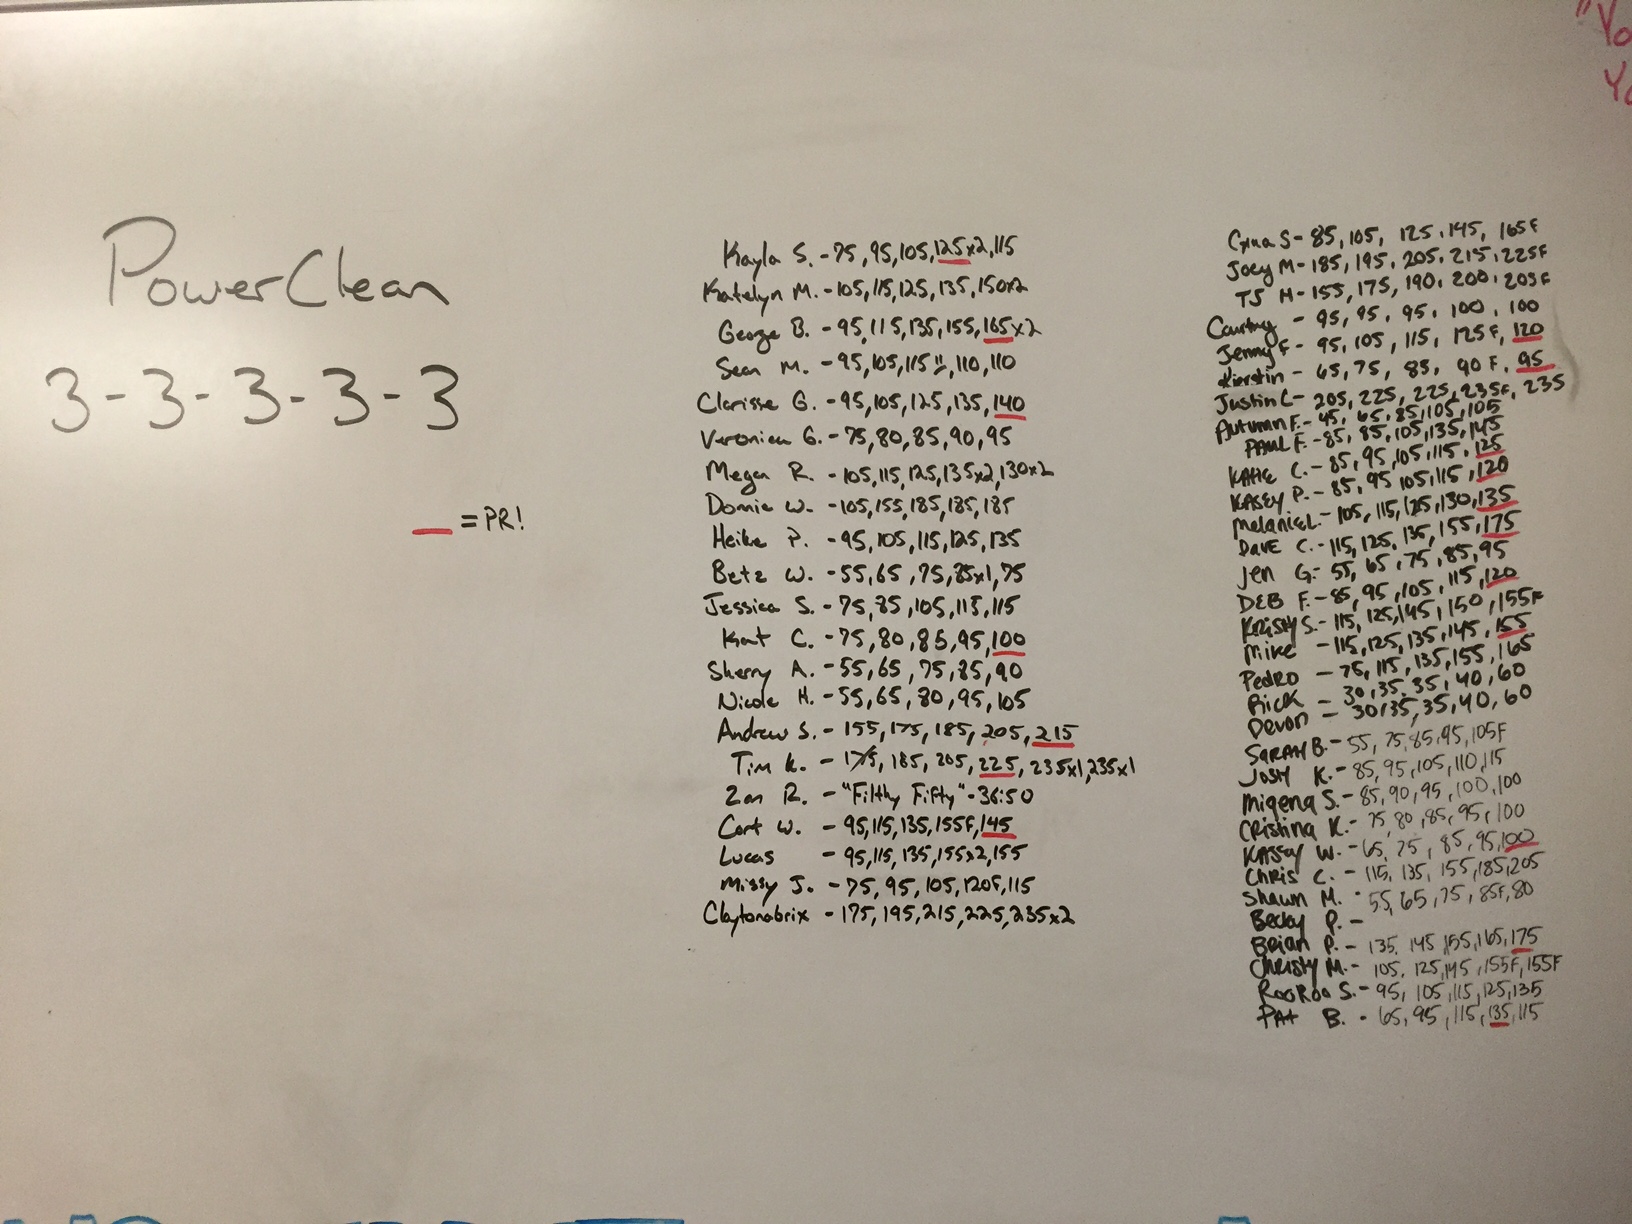 PowerClean
3-3-3-3-3
= PR!
Kayla S. - 75, 95, 105, 125x2, 115
Katelyn M. - 105, 115, 125, 135, 150x2
George B. - 95, 115, 135, 155, 165x2
Sean M. - 95, 105, 115 !!, 110, 110
Clarisse G. - 95, 105, 125, 135, 140
Veronica G. - 75, 80, 85, 90, 95
Megan R. - 105, 115, 125, 135x2, 130x2
Domic W. - 105, 155, 185, 185, 185
Heike P. - 95, 105, 115, 125, 135
Betz W. - 55, 65, 75, 85x1, 75
Jessica S. - 75, 85, 105, 115, 115
Kat C. - 75, 80, 85, 95, 100
Sherry A. - 55, 65, 75, 85, 90
Nicole H. - 55, 65, 80, 95, 105
Andrew S. - 155, 175, 185, 205, 215
Tim K. - 175, 185, 205, 225, 235x1, 235x1
Zan R. - "Filthy Fifty" - 36:50
Cort W. - 95, 115, 135, 155F, 145
Lucas - 95, 115, 135, 155x2, 155
Missy J. - 75, 95, 105, 120F, 115
Claytonabrix - 175, 195, 215, 225, 235x2
S - 85, 105, 125, 145, 165F
Joey M - 185, 195, 205, 215, 225F
TJ H - 155, 175, 190, 200, 205F
Courtney - 95, 95, 95, 100, 100
Jenny F - 95, 105, 115, 125F, 120
Kierstin - 65, 75, 85, 90F, 95
Justin C - 205, 225, 225, 235F, 235
Autumn F. - 45, 65, 85, 105, 105
PAUL F. - 85, 85, 105, 135, 145
KATIE C. - 85, 95, 105, 115, 125
KASEY P. - 85, 95, 105, 115, 120
Melanie L. - 105, 115, 125, 130, 135
DAVE C. - 115, 125, 135, 155, 175
Jen G. - 55, 65, 75, 85, 95
DEB F. - 85, 95, 105, 115, 120
KRISTY S. - 115, 125, 145, 150, 155F
Mike - 115, 125, 135, 145, 155
PEDRO - 75, 115, 135, 155, 165
RicK - 30, 35, 35, 40, 60
Devon - 30, 35, 35, 40, 60
SARAH B. - 55, 75, 85, 95, 105F
JOSH K. - 85, 95, 105, 110, 115
Migena S. - 85, 90, 95, 100, 100
Cristina K. - 75, 80, 85, 95, 100
KASSEY W. - 65, 75, 85, 95, 100
CHRIS C. - 115, 135, 155, 185, 205
Shawn M. - 55, 65, 75, 85F, 80
Becky P. -
BRIAN P. - 135, 145, 155, 165, 175
Christy M. - 105, 125, 145, 155F, 155F
RooRoo S. - 95, 105, 115, 125, 135
PAt B. - 65, 95, 115, 135, 115
"Yo
Yo